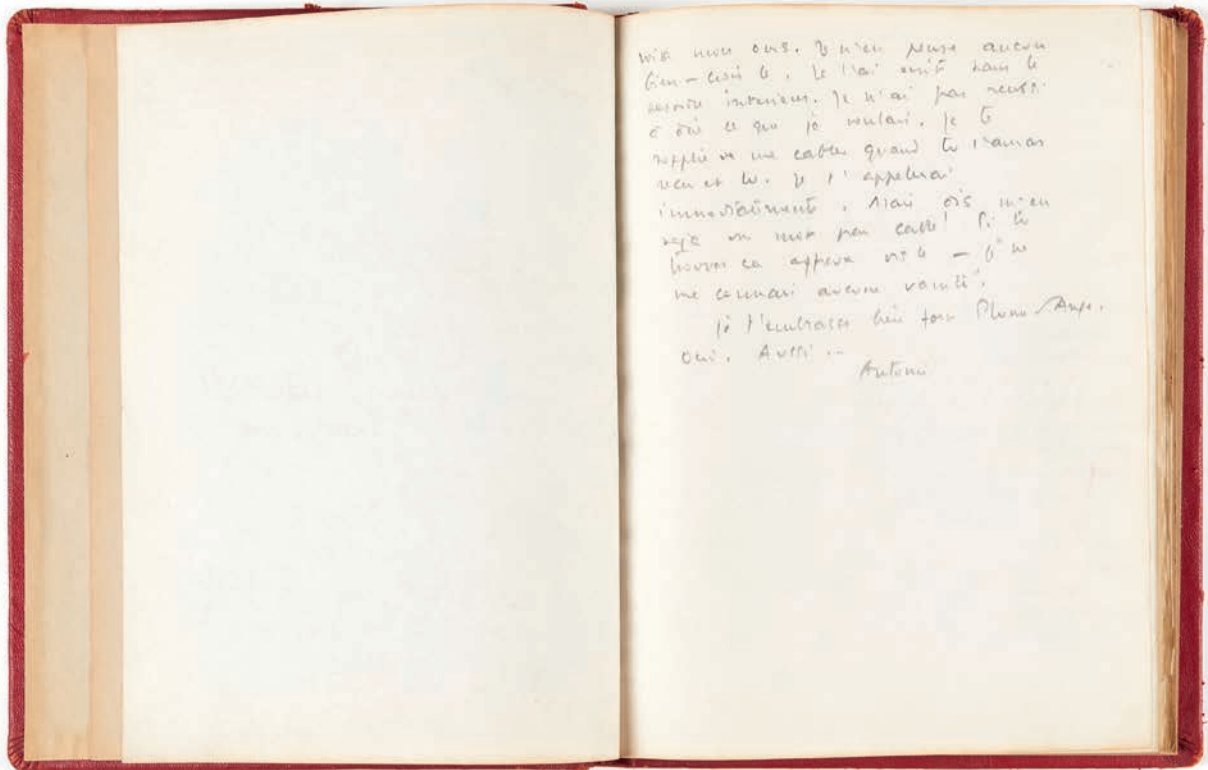 mon ours. Je n'en pense aucun
bien - crois le. Je l'ai écrit dans le
intérieur. Je n'ai pas réussi
à dire ce que je voulais. Je te
supplie de me cabler quand tu l'auras
reçu et lu. Je t'appellerai
immédiatement. Mais dis m'en
déjà un mot par cable! Si tu
trouves ça affreux dis le - je ne
me connais aucune vanité.
Je t'embrasse bien fort Plume d'Ange.
Oui. Aussi ...
Antoine